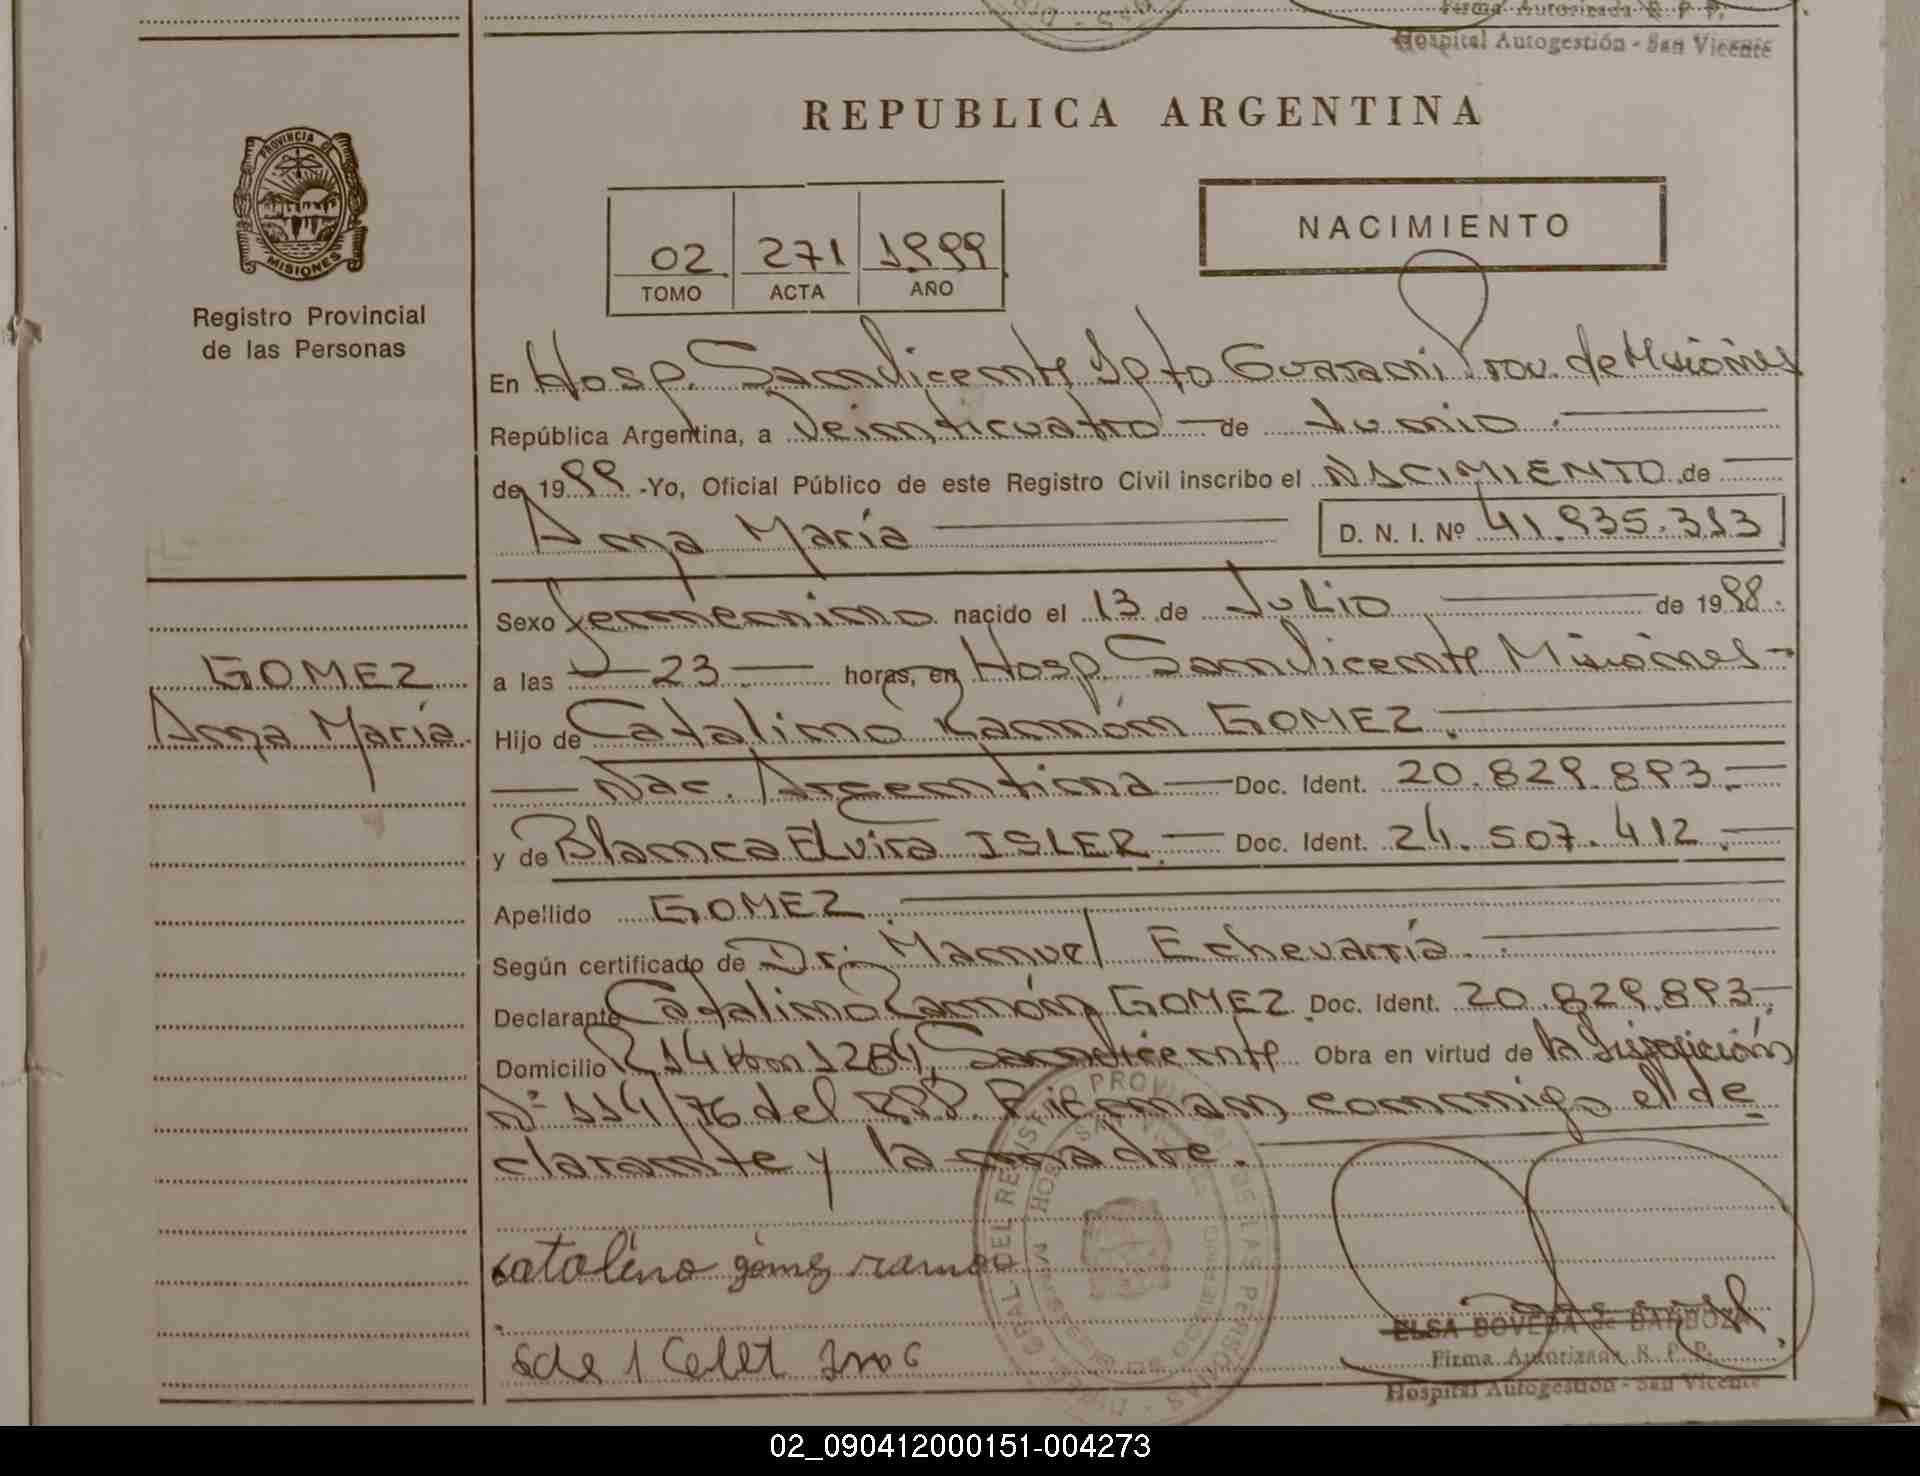 Firma Autorizada R. P. P.
Hospital Autogestión - San Vicente
REPUBLICA ARGENTINA
PROVINCIA DE
MISIONES
Registro Provincial
de las Personas
02 271 1999
TOMO ACTA AÑO
NACIMIENTO
En Hosp. San Vicente Dpto Guarani Prov. de Misiones
República Argentina, a Veinticuatro de Junio
de 1999 -Yo, Oficial Público de este Registro Civil inscribo el NACIMIENTO de
Anya María D. N. I. Nº 41.935.313
Sexo femenino nacido el 13 de Julio de 1998.
GOMEZ
Anya María
a las 23 horas, en Hosp. San Vicente Misiones
Hijo de Catalino Ramón GOMEZ.
Nac. Argentina Doc. Ident. 20.829.893.
y de Blanca Elvira ISLER. Doc. Ident. 24.507.412.
Apellido GOMEZ.
Según certificado de Dr. Manuel Echevarría.
Declarante Catalino Ramón GOMEZ. Doc. Ident. 20.829.893.
Domicilio R 14 Km 1264, San Vicente Obra en virtud de la Disposición
Nº 114/76 del RPP. Firman conmigo el de
clarante y la madre.
catalino gómez ramon
ELSA BOVEDA de BARBOZA
Firma Autorizada R. P. P.
Hospital Autogestión - San Vicente
02_090412000151-004273